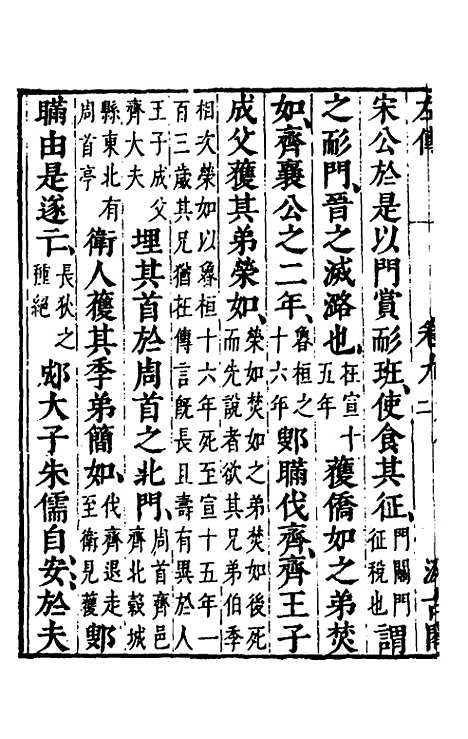 左傳 卷九 二 汲古閣
宋公於是以門賞耏班、使食其征、門關門征稅也謂
之耏門、晉之滅潞也、在宣十五年獲僑如之弟焚
如、齊襄公之二年、魯桓之十六年鄋瞞伐齊、齊王子
成父獲其弟榮如、榮如焚如之弟焚如後死而先說者欲其兄弟伯季
相次榮如以魯桓十六年死至宣十五年一百三歲其兄猶在傳言旣長且壽有異於人
王子成父齊大夫埋其首於周首之北門、周首齊邑齊北穀城
縣東北有周首亭衛人獲其季弟簡如、伐齊退走至衛見獲鄋
瞞由是遂亡、長狄之種絕郕大子朱儒自安於夫